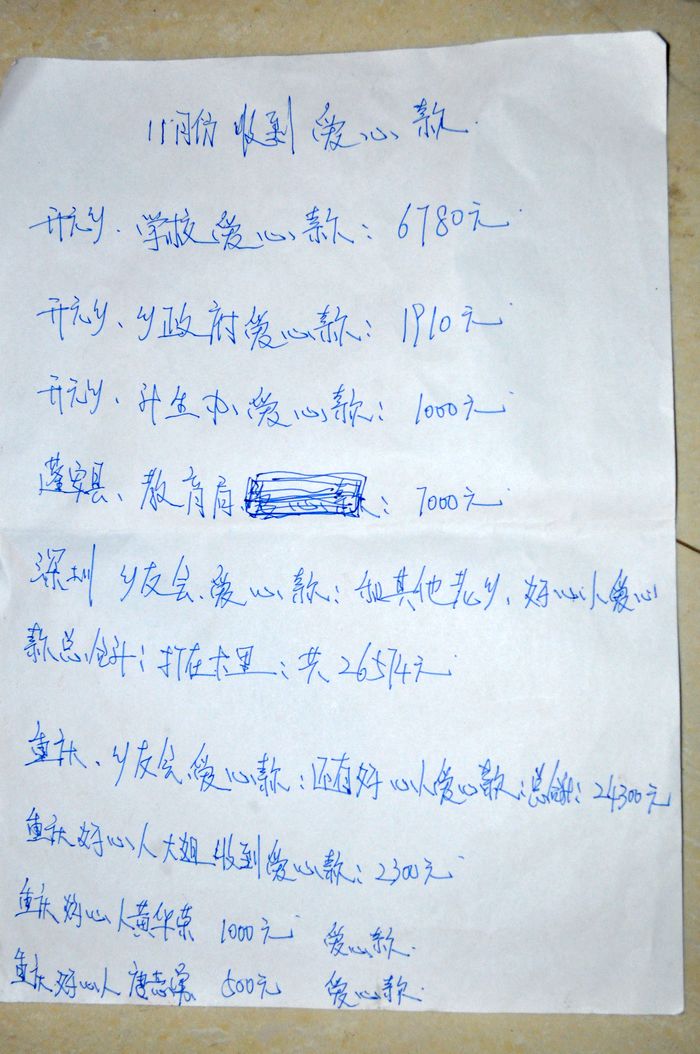 11月份 收到 爱心款.
开元乡、学校爱心款：6780元
开元乡、乡政府爱心款：1910元
开元乡、计生办爱心款：1000元
蓬安县、教育局、爱心款：7000元
深圳 乡友会、爱心款：和其他老乡、好心人爱心
款总合计：打在卡里：共26574元
重庆、乡友会、爱心款：还有好心人爱心款：总合计：24300元
重庆好心人大姐收到爱心款：2300元
重庆好心人黄华荣 1000元 爱心款.
重庆好心人唐志勇 500元 爱心款.